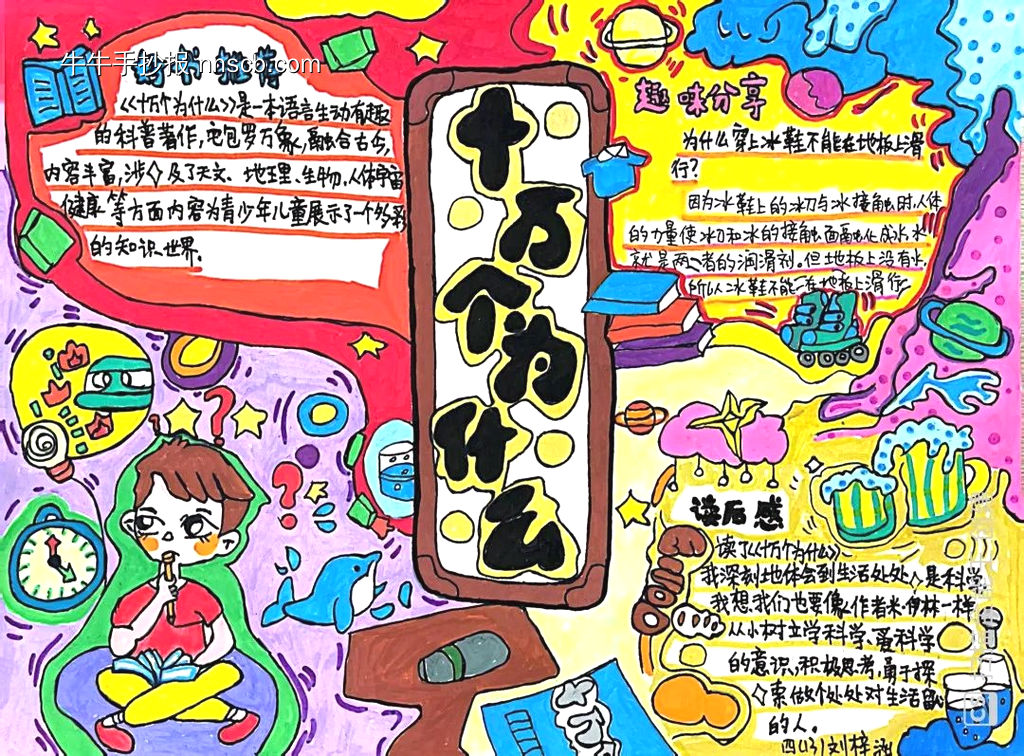 牛牛手抄报 nnscb.com
好书推荐
《十万个为什么》是一本语言生动有趣
的科普著作,它包罗万象,融合古今,
内容丰富,涉及了天文、地理、生物、人体宇宙
健康等方面内容为青少年儿童展示了一个多彩
的知识世界。
十万个为什么
趣味分享
为什么穿上冰鞋不能在地板上滑
行?
因为冰鞋上的冰刀与冰接触时,人体
的力量使冰刀和冰的接触面融化成水,水
就是两者的润滑剂。但地板上没有水,
所以冰鞋不能在地板上滑行
读后感
读了《十万个为什么》、
我深刻地体会到生活处处是科学
我想,我们也要像作者米·伊林一样
从小树立学科学、爱科学
的意识,积极思考,勇于探
索做个处处对生活
的人。
四(3)刘梓